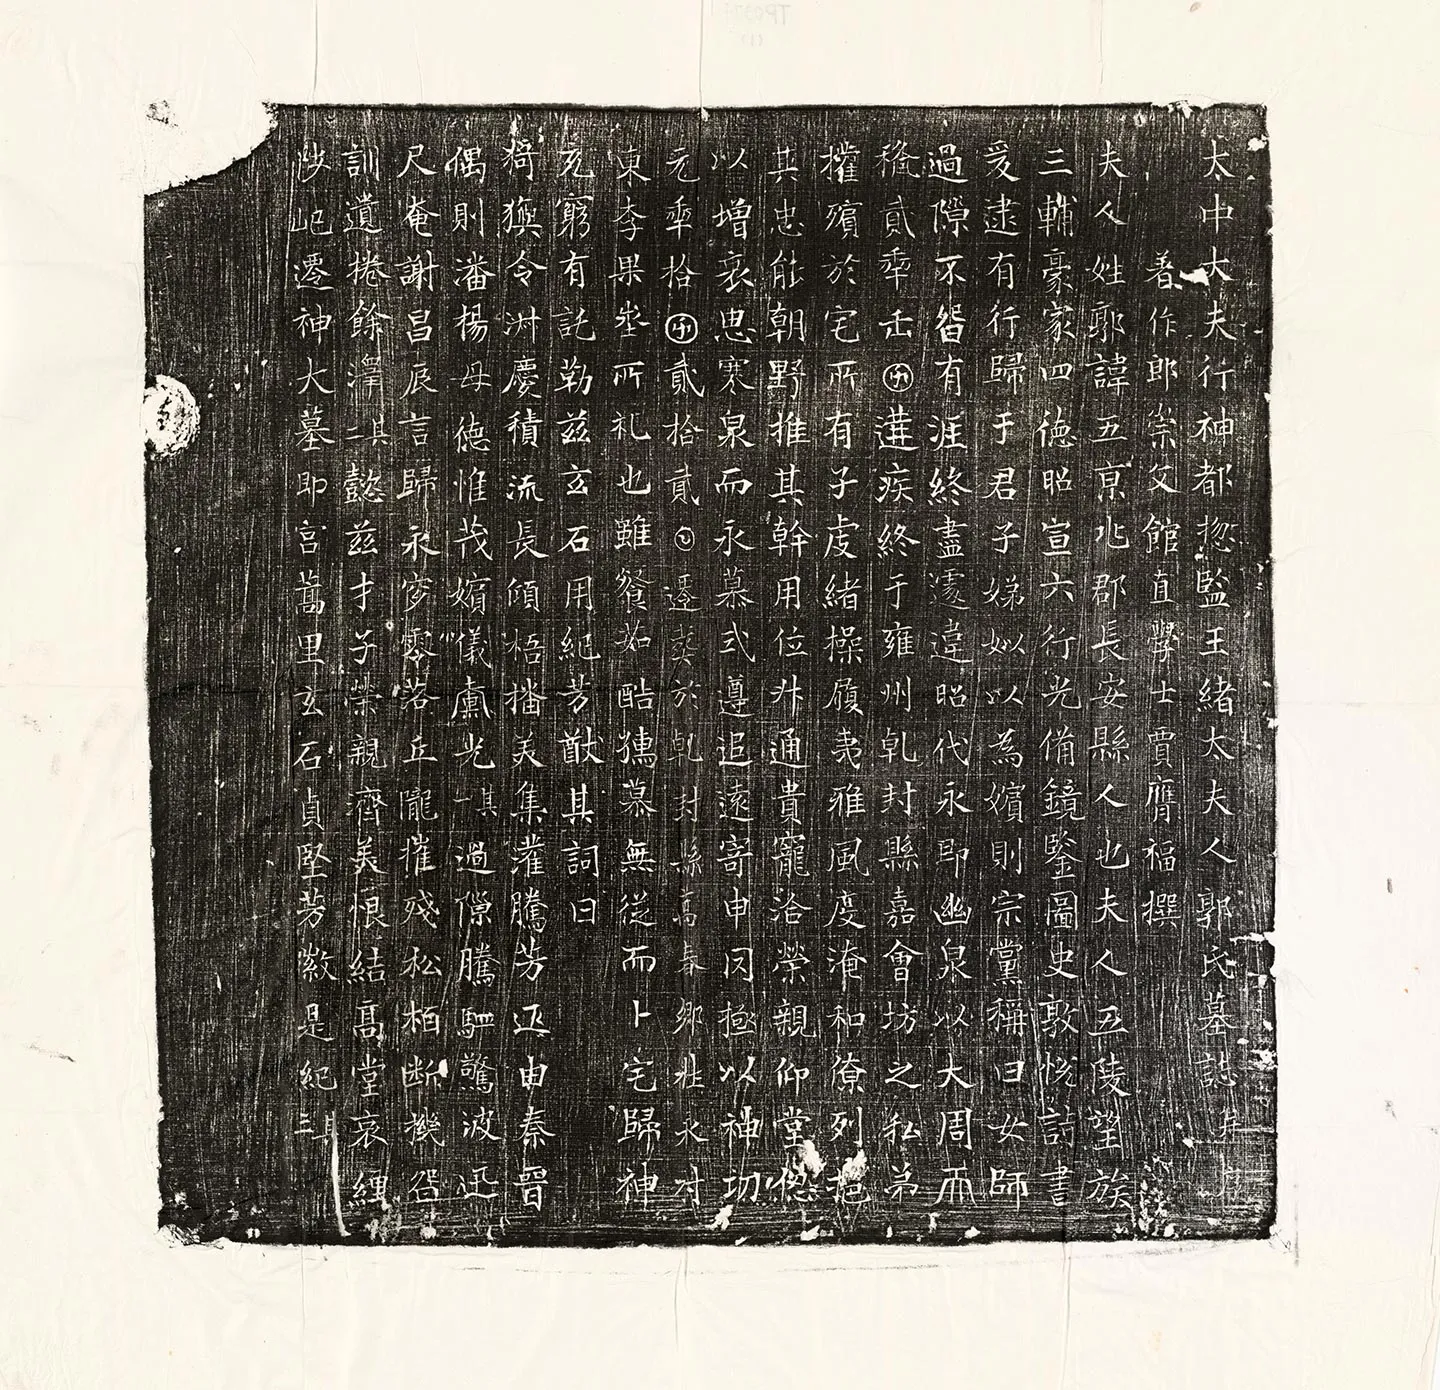 太中大夫行神都惣監王緒太夫人郭氏墓誌并序
著作郎崇文館直學士賈膺福撰
夫人姓郭諱五京兆郡長安縣人也夫人五陵望族
三輔豪家四德昭宣六行光俻鏡鑒圖史敦悅詩書
爰逮有行歸于君子娣姒以為嬪則宗黨稱曰女師
過隙不畱有涯終盡遽違昭代永即幽泉以大周𠀑
穐貳𠡦𠙺𠥱遘疾終于雍州乹封縣嘉會坊之私弟
權殯於宅所有子虔緒操履夷雅風度淹和僚列挹
其忠能朝野推其幹用位升通貴寵洽榮親仰堂偬
以增哀思寒泉而永慕式遵追遠寄申罔極以神切
元𠡦拾𠥱貳拾貳𡆠遷葬於乹封縣高春鄉壯永村
東李果壟所礼也雖餐茹酷獯慕無從而卜宅歸神
死窮有託勒兹玄石用紀芳猷其詞曰
猗獫令淑慶積流長傾梧播美集灌騰芳迋由秦晉
偶則潘楊母德惟茂嬪儀𠐀光其一過隙騰駟驚波迅
尺奄謝昌辰言歸永窆零落丘隴摧殘松栢断機畱
訓遺捲餘澤其二懿兹才子榮親濟美恨結髙堂哀纏
陟屺遷神大墓即宮蒿里玄石貞堅芳徽是紀其三